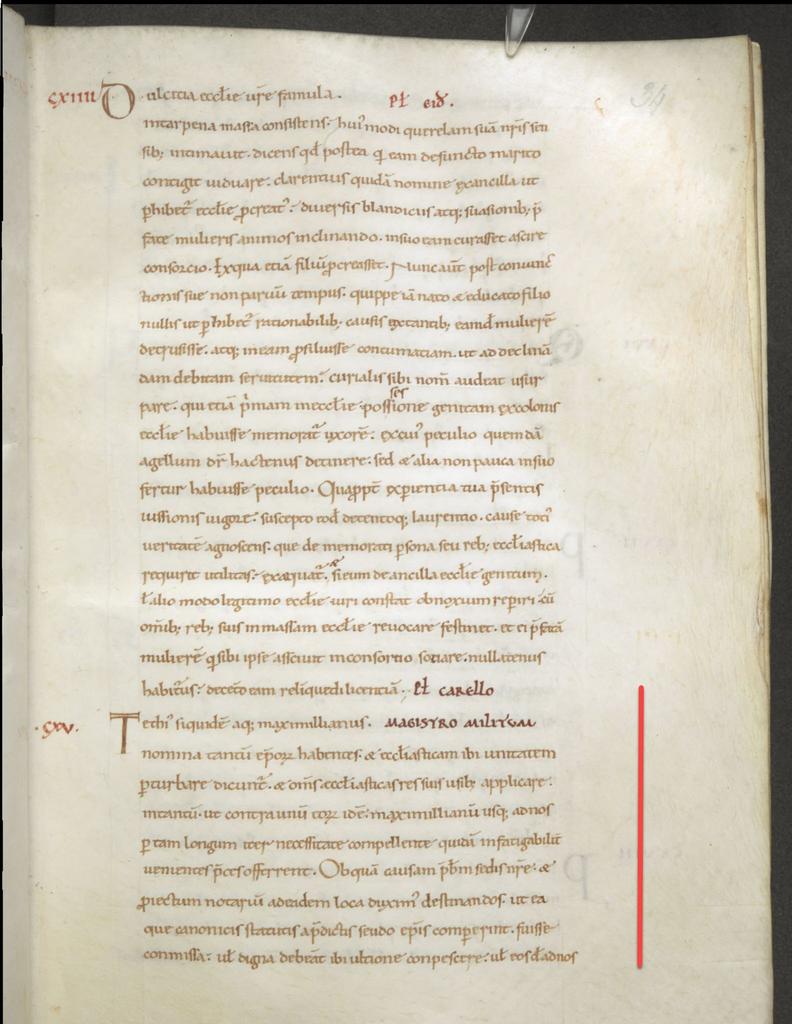 cxiiii Dulcitia ecclie ure famula. pl eid. 34
intarpena massa consistens. hui modi querelam sua nris sen
sib; intimauit. dicens qd postea q eam defuncto marito
contigit uiduare. clarentius quida nomine exancilla ut
phibet ecclie pcreat. diuersis blandiciis atq; suasionib; p
fate mulieris animos inclinando. insuo eam curasset ascire
consorcio. Exqua etia filiu pcreasset. Nunc aut post coniunc
tionis sue non paruu tempus. quippe ia nato & educato filio
nullis ut phibet rationabilib; causis extantib; eamd muliere
detrusisse. atq; in eam psiluisse contumatiam. ut ad declina
dam debitam seruitutem. curialis sibi nom audeat usur
pare. qui etia pmam inecclie possessione genitam excolonis
ecclie habuisse memorat uxore. excui peculio quem da
agellum dr hactenus detinere. sed & alia non pauca insuo
fertur habuisse peculio. Quappt experientia tua psentis
iussionis uigore. suscepto eod detentoq; laurentio. cause toti
ueritate agnoscens. que de memorati psona seu reb; eccliastica
requirit utilitas. exequat. & si eum de ancilla ecclie genitum.
l alio modo legitimo ecclie iuri constat obnoxium repiri. cu
omib; reb; suis in massam ecclie reuocare festinet. et ei pfata
muliere q sibi ipse assciuit in consortio sotiare. nullatenus
habitus. deceto eam reliquedi licentia. Pl carello
.cxv. Techi siquide aq; maximillianus. magistro militum
nomina tantu epor habentes. & eccliasticam ibi unitatem
pturbare dicunt. & oms eccliasticas res suis usib; applicare.
intantu. ut contra unu eor ide. maximillianu usq; ad nos
p tam longum iter necessitate compellente quida infatigabilit
uenientes pces offerrent. Ob qua causam pbm sedis nre. &
piectum notariu adeadem loca dixim destinandos. ut ea
que canonicis statutis a pdictis seudo epis comperint. fuisse
commissa. ul digna debeat ibi ultione conpescere. ul eos d ad nos